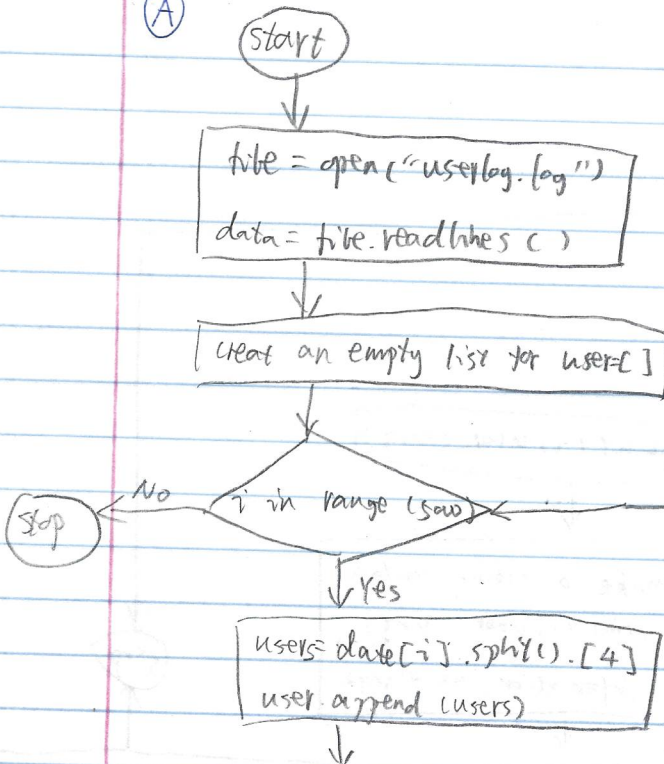 A
start
file = open("userlog.log")
data = file.readlines ( )
creat an empty list for user=[ ]
i in range (500)
No
stop
Yes
users= date[i].split().[4]
user.append (users)